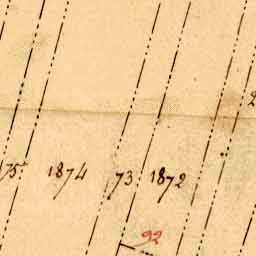 75. 1874 73. 1872
92